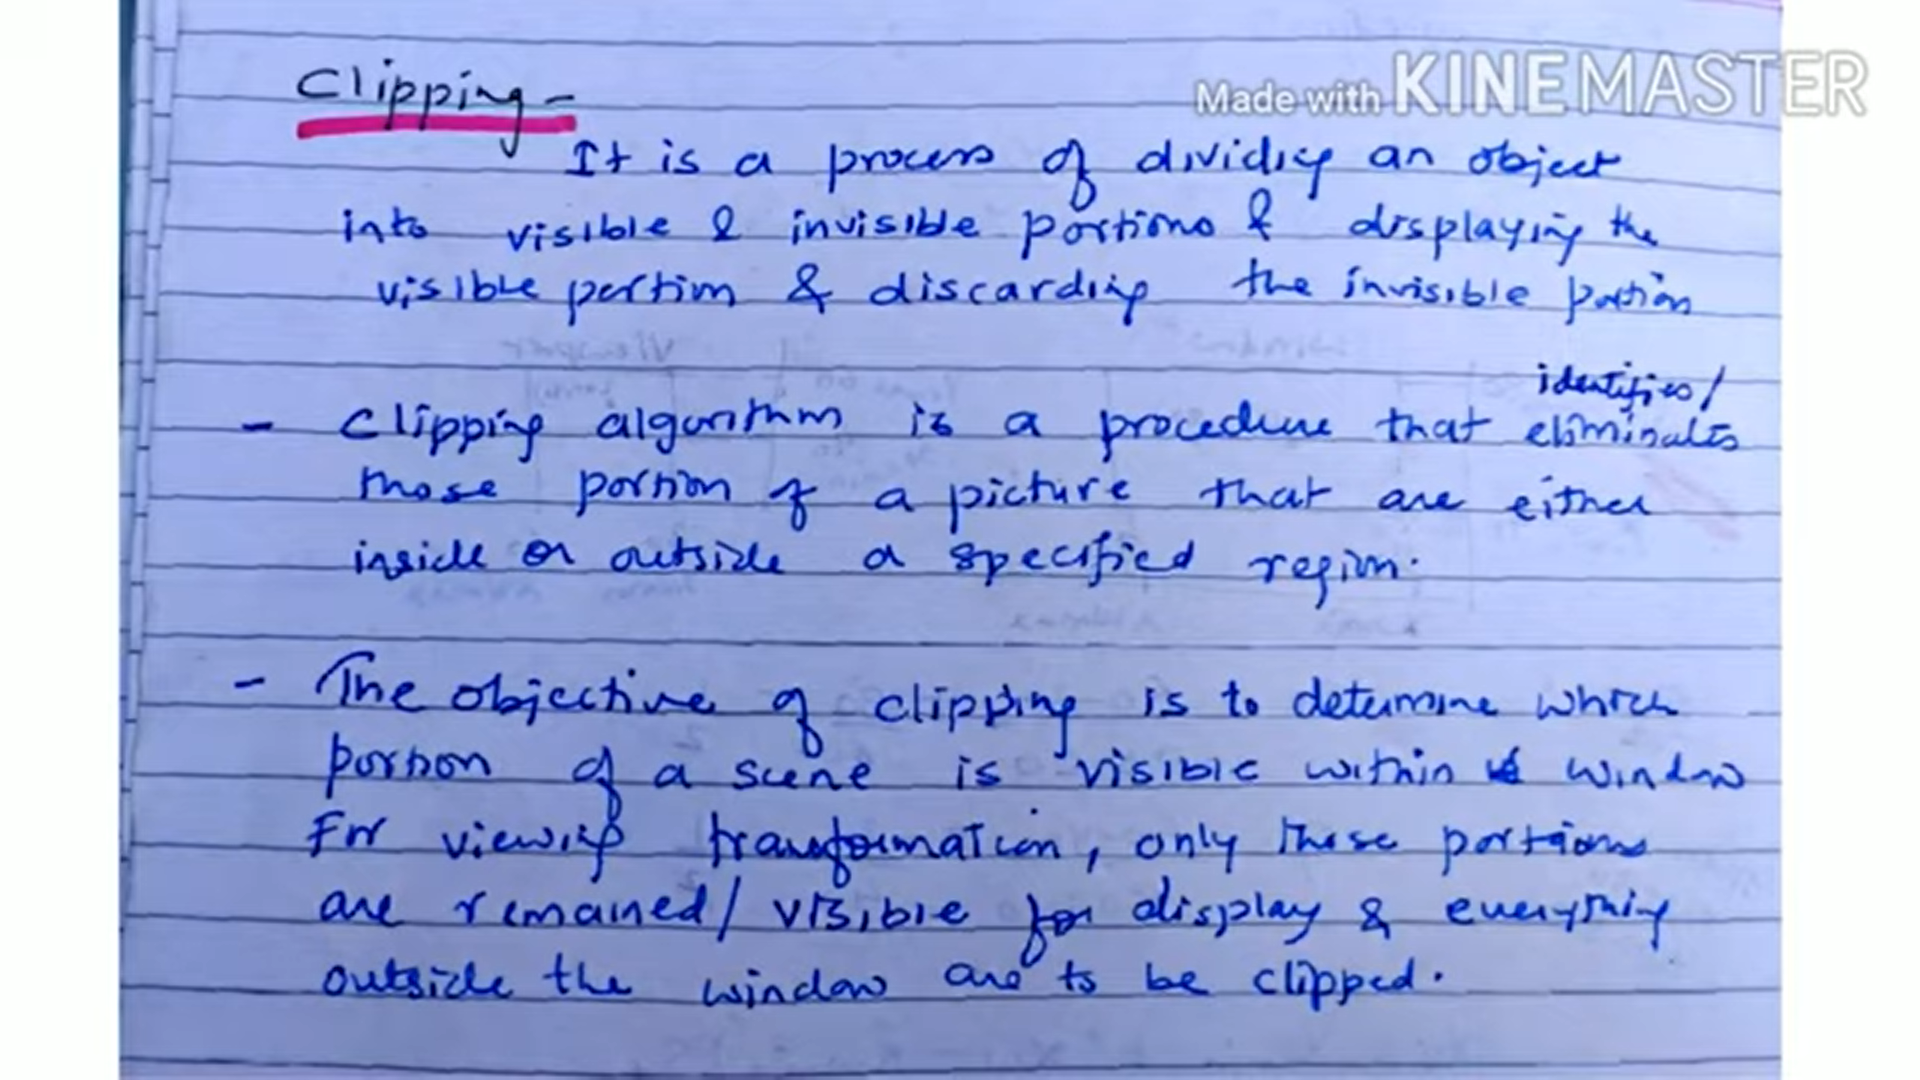 Clipping -
Made with KINEMASTER
It is a process of dividing an object
into visible & invisible portions & displaying the
visible portion & discarding the invisible portion
identifies/
- Clipping algorithm is a procedure that eliminates
those portion of a picture that are either
inside or outside a specified region.
- The objective of clipping is to determine which
portion of a scene is visible within window
For viewing transformation, only these portions
are remained/visible for display & everything
outside the window are to be clipped.